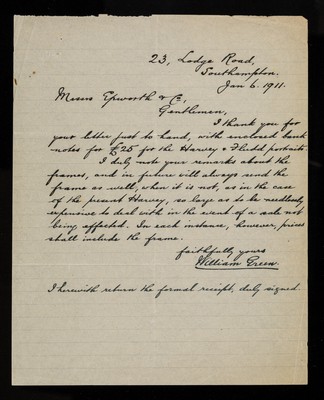 23, Lodge Road,
Southampton.
Jan 6. 1911.
Messrs Epworth & Co,
Gentlemen,
I thank you for
your letter just to hand, with enclosed bank
notes for £25 for the Harvey & Fludd portraits.
I duly note your remarks about the
frames, and in future will always send the
frame as well, when it is not, as in the case
of the present Harvey, so large as to be needlessly
expensive to deal with in the event of a sale not
being effected. In each instance, however, prices
shall include the frame.
faithfully yours
William Green.
I herewith return the formal receipt, duly signed.